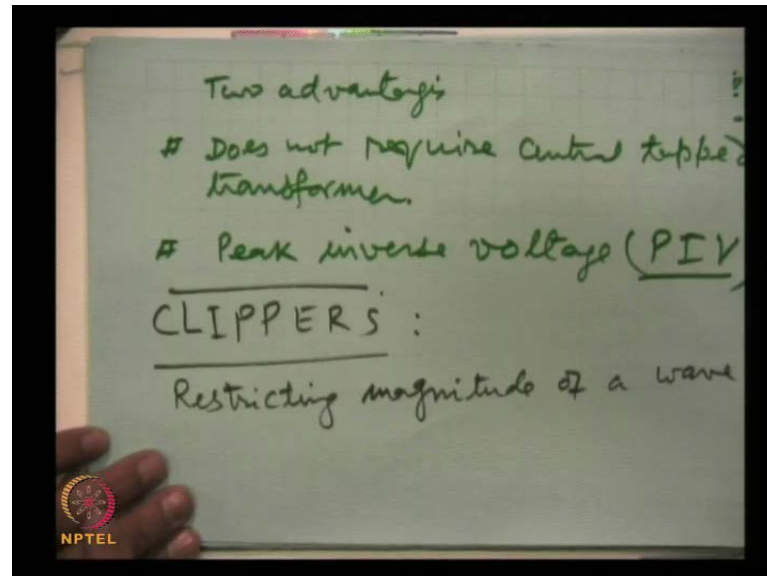 Two advantagis
# Does not require Central tapped
transformer.
# Peak inverse voltage (PIV)
CLIPPERS :
Restricting magnitude of a wave
NPTEL